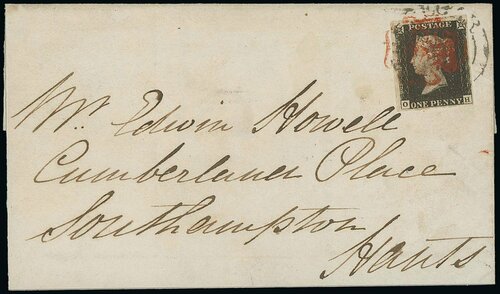 POSTAGE
O H
ONE PENNY
Mr. Edwin Howell
Cumberland Place
Southampton
Hants